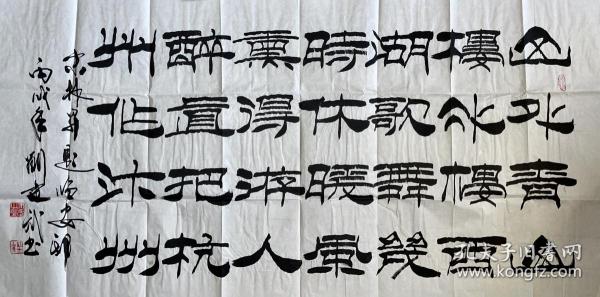 山外青山
樓外樓西
湖歌舞幾
時休暖風
熏得游人
醉直把杭
州作汴州
宋林升題臨安邸
丙戌年
孔夫子旧书网
www.kongfz.com